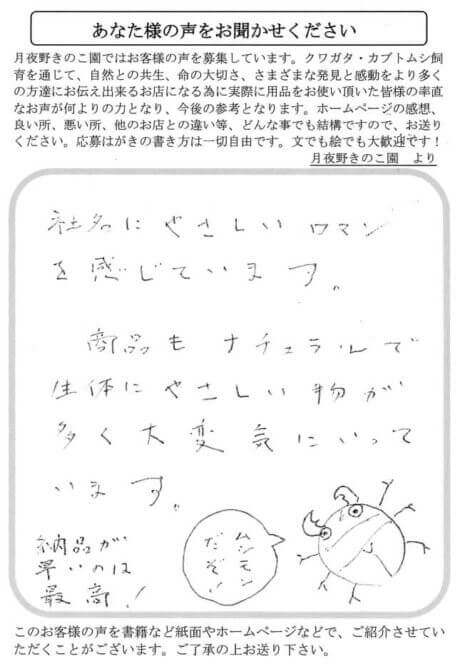 あなた様の声をお聞かせください
月夜野きのこ園ではお客様の声を募集しています。クワガタ・カブトムシ飼
育を通じて、自然との共生、命の大切さ、さまざまな発見と感動をより多く
の方達にお伝え出来るお店になる為に実際に用品をお使い頂いた皆様の率直
なお声が何よりの力となり、今後の参考となります。ホームページの感想、
良い所、悪い所、他のお店との違い等、どんな事でも結構ですので、お送り
ください。応募はがきの書き方は一切自由です。文でも絵でも大歓迎です！
月夜野きのこ園　より
社名にやさしいロマン
を感じています。
商品もナチュラルで
生体にやさしい物が
多く大変気にいって
います。
納品が
早いのは
最高！
ムシモン
だぞ！
このお客様の声を書籍など紙面やホームページなどで、ご紹介させてい
ただくことがございます。ご了承の上お送り下さい。